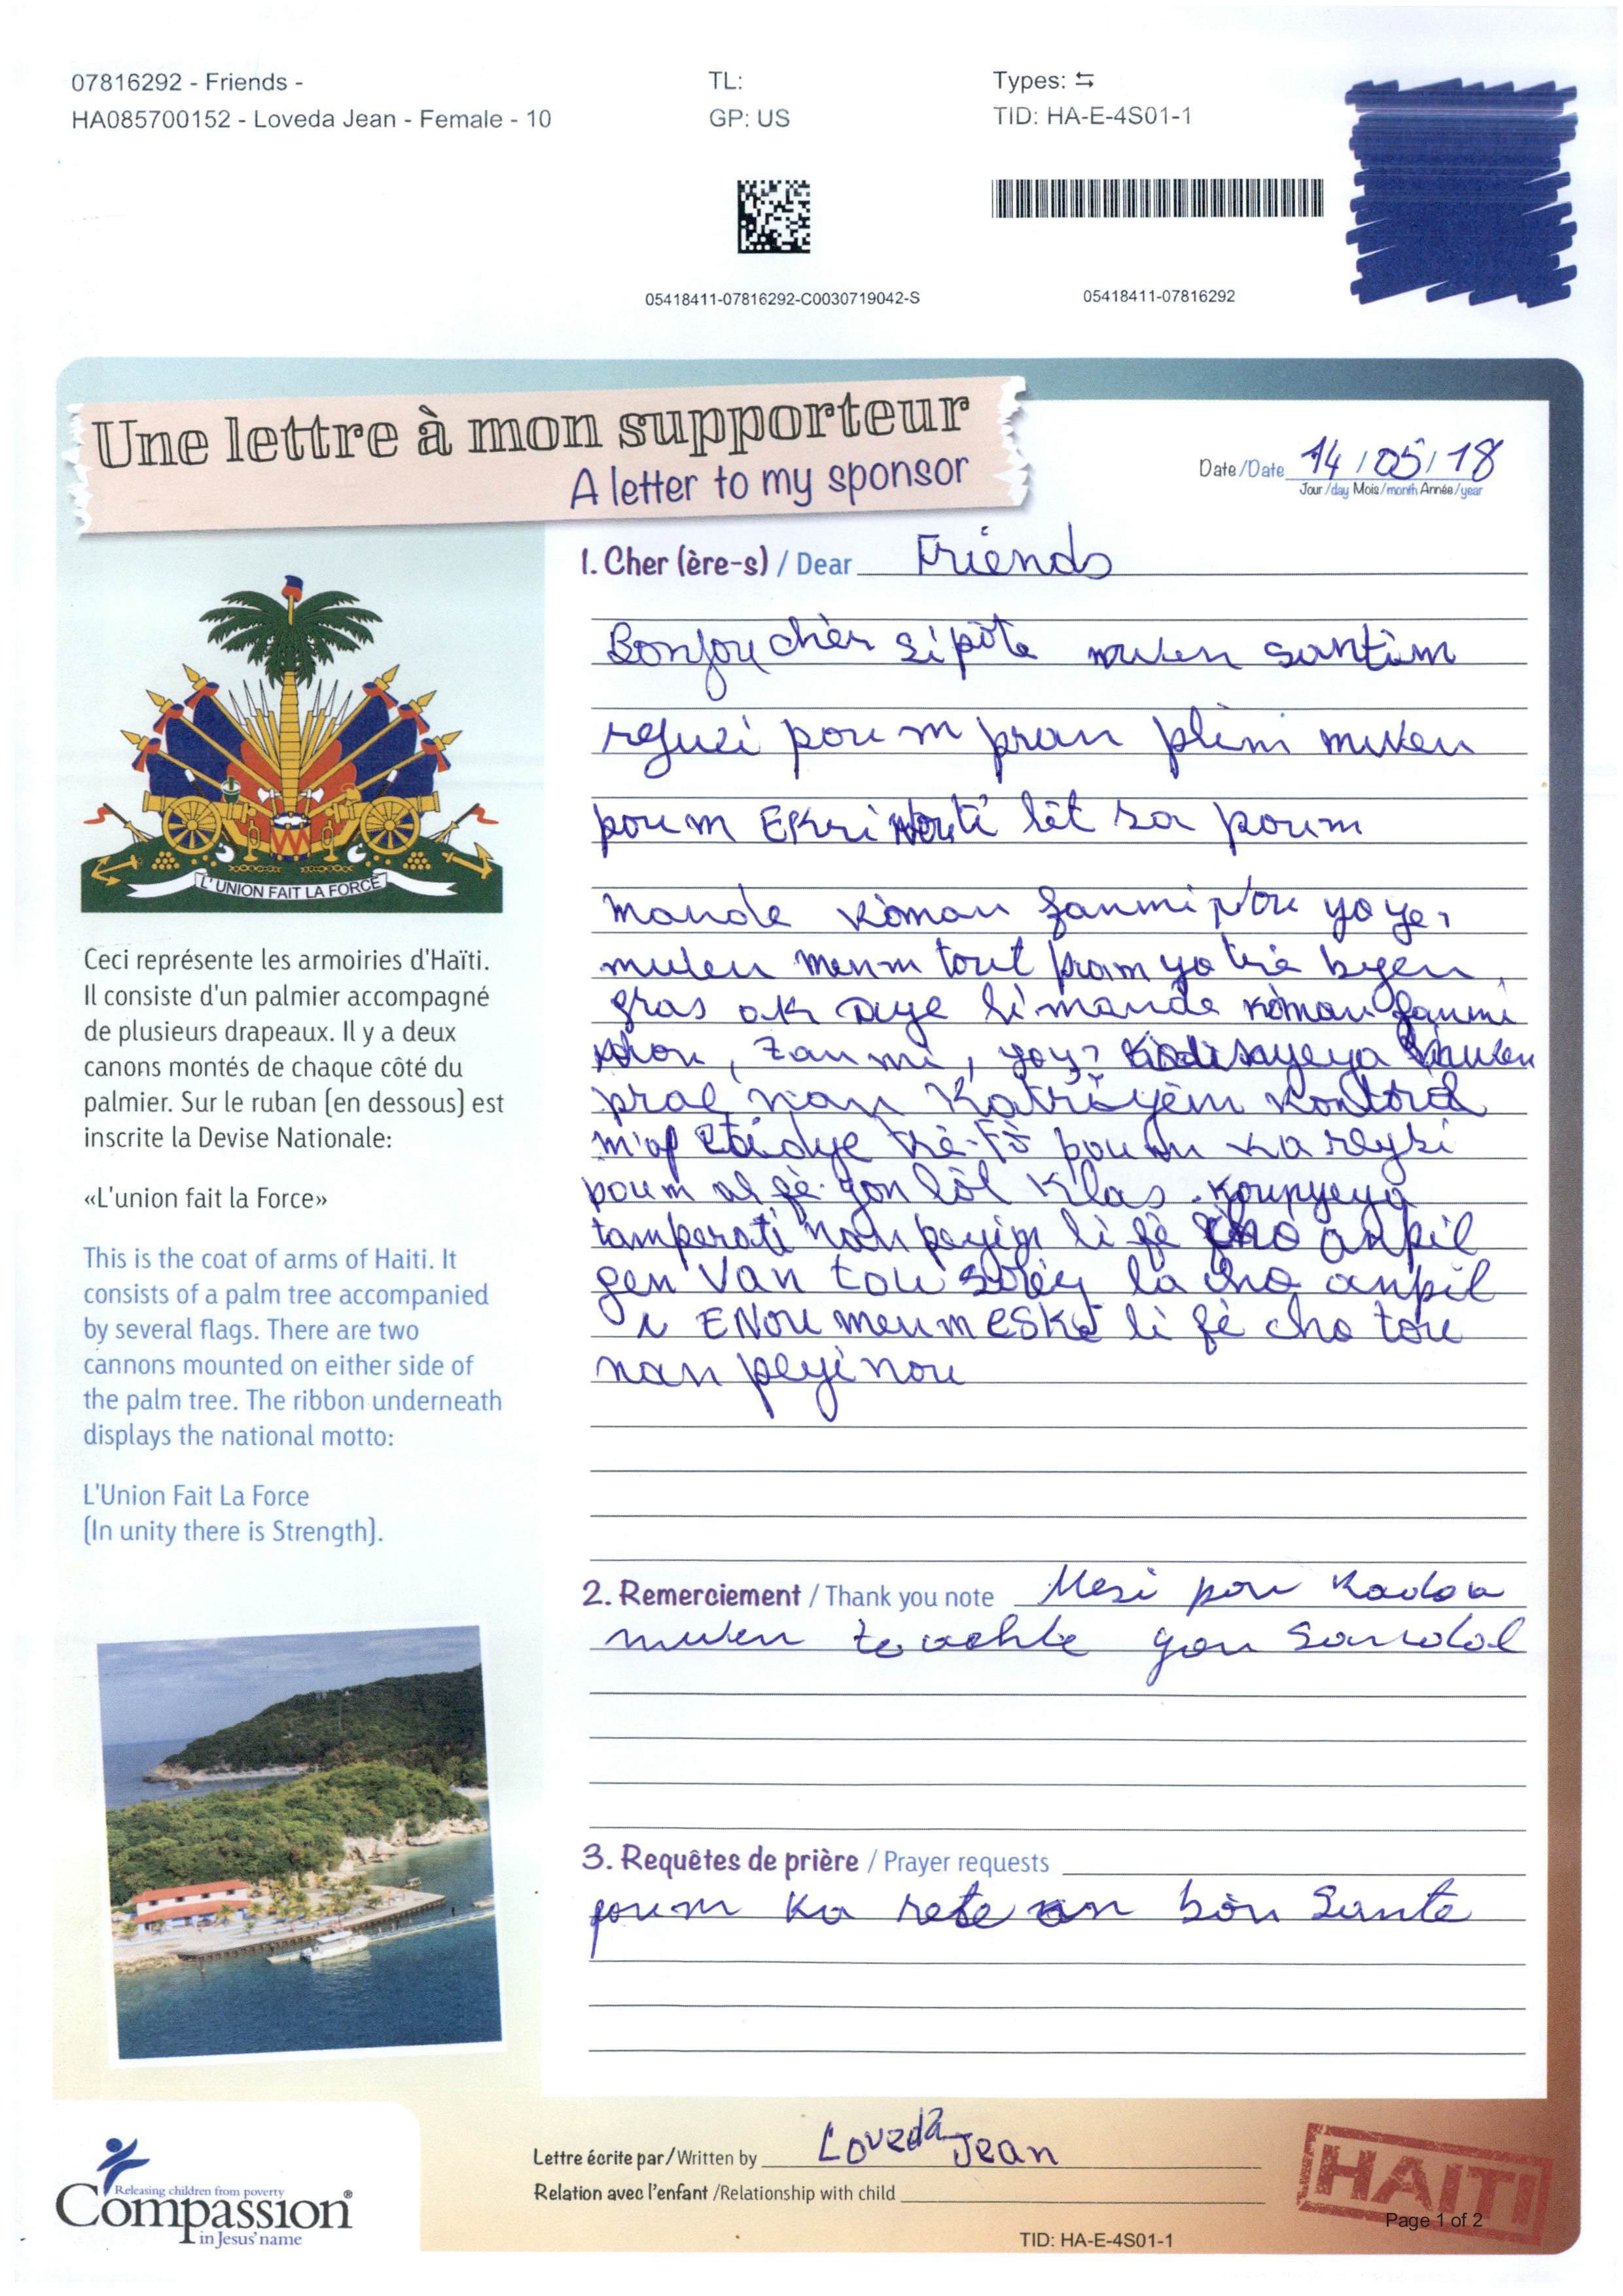 07816292 - Friends -
HA085700152 - Loveda Jean - Female - 10
TL:
GP: US
Types: ⇆
TID: HA-E-4S01-1
05418411-07816292-C0030719042-S
05418411-07816292
Une lettre à mon supporteur
A letter to my sponsor
Date/Date 14/05/18
Jour/day Mois/month Année/year
L'UNION FAIT LA FORCE
Ceci représente les armoiries d'Haïti.
Il consiste d'un palmier accompagné
de plusieurs drapeaux. Il y a deux
canons montés de chaque côté du
palmier. Sur le ruban (en dessous) est
inscrite la Devise Nationale:
«L'union fait la Force»
This is the coat of arms of Haiti. It
consists of a palm tree accompanied
by several flags. There are two
cannons mounted on either side of
the palm tree. The ribbon underneath
displays the national motto:
L'Union Fait La Force
(In unity there is Strength).
1. Cher (ère-s) / Dear Friends
Bonjou chèr sipòte mwen santim
pou m pran plim mwen
pou m Ekri lèt sa poum
mande kòman fanmi nou yo ye,
mwen menm tout pam yo trè byen
gras ak mande kòman fanmi
zanmi, mwen
pral nan Katriyèm kontwòl
m'ap pou m ka reysi
poum al fè yon lòt klas. kounyeya
tamperati nan peyim li fè cho anpil
gen van tou solèy la cho anpil
ENou menm eske li fè cho tou
nan peyi nou
2. Remerciement / Thank you note Mesi pou kado a
mwen te achte yon sandal
3. Requêtes de prière / Prayer requests
poum ka rete an bòn Sante
Lettre écrite par/Written by Loveda Jean
Relation avec l'enfant /Relationship with child
Releasing children from poverty
Compassion®
in Jesus' name
HAITI
Page 1 of 2
TID: HA-E-4S01-1